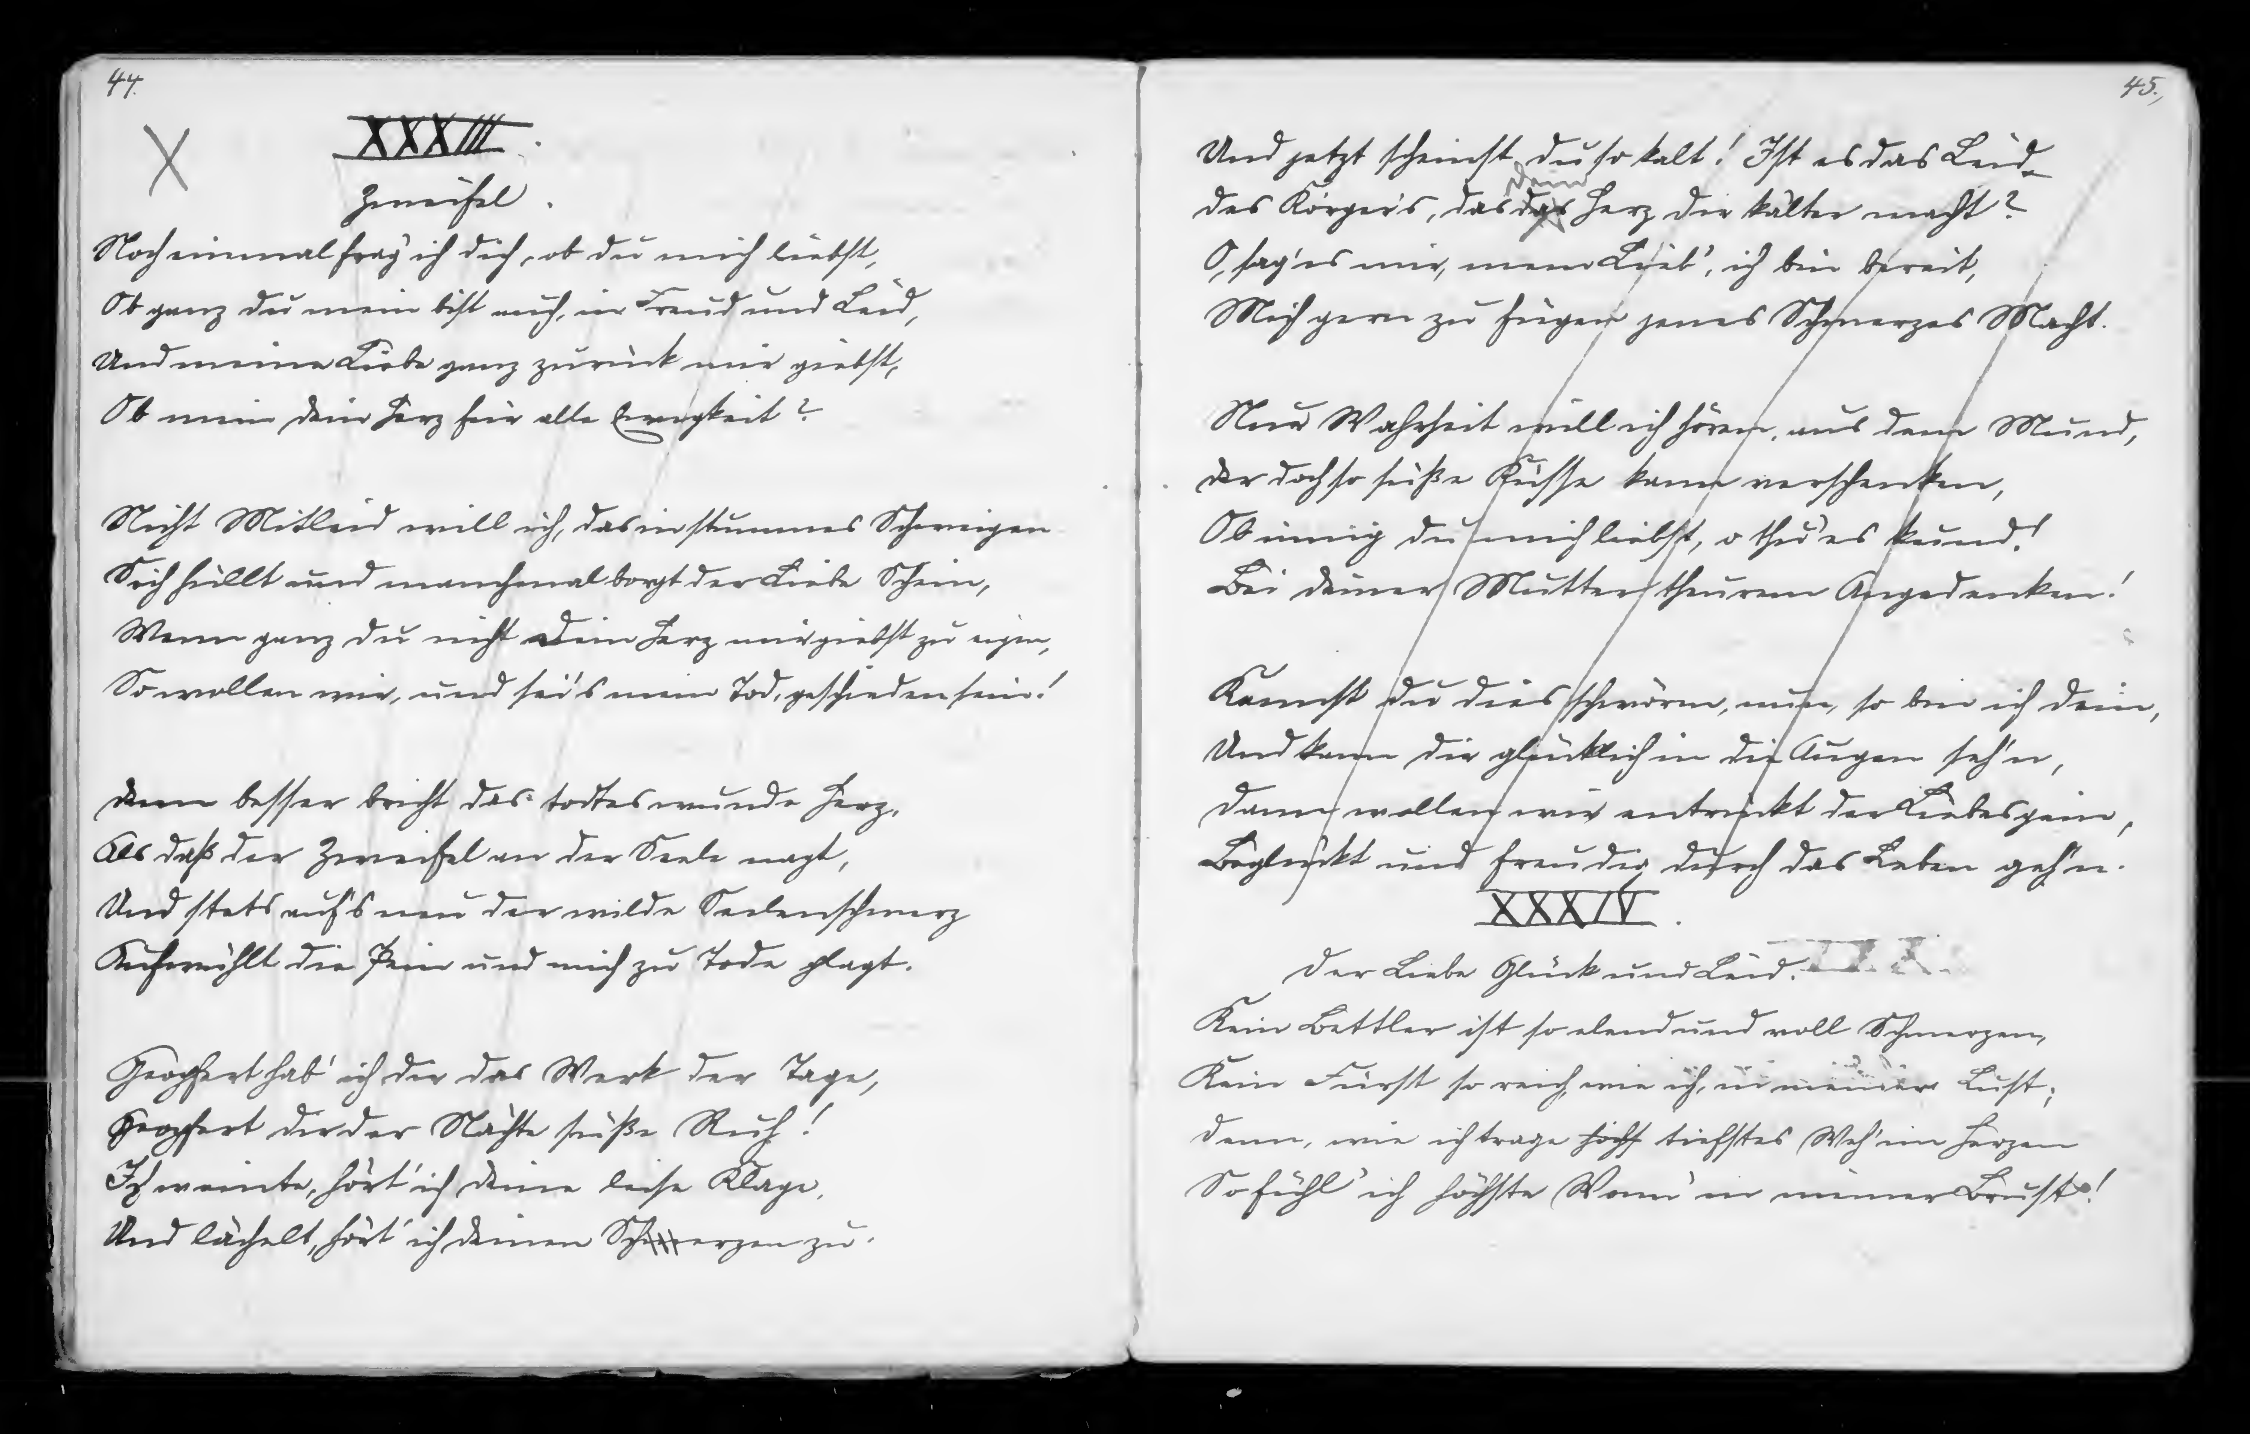 44.
XXXIII.
Zweifel.
Noch einmal frag' ich dich, ob du mich liebst,
Ob ganz du mein bist auch, in Freud und Leid,
Und meine Liebe ganz zurück mir giebst,
Ob mein dein Herz für alle Ewigkeit?
Nicht Mitleid will ich, das in stummes Schweigen
Sich hüllt und manchmal borgt der Liebe Schein,
Wenn ganz du nicht dein Herz mir giebst zu eigen,
So wollen wir, und sei's mein Tod, geschieden sein!
Denn besser bricht das todteswunde Herz,
Als daß der Zweifel an der Seele nagt,
Und stets auf's neu der wilde Seelenschmerz
Aufwühlt die Pein und mich zu Tode plagt.
Geopfert hab' ich dir das Werk der Tage,
Geopfert dir der Nächte süße Ruh!
Ich weinte, hört' ich deine leise Klage,
Und lächelt', hört' ich deinen Scherzen zu.
45.
Und jetzt scheinst du so kalt! Ist es das Leid
Des Körper's, das das Herz dir kälter macht?
dein
O, sag' es mir, mein Lieb', ich bin bereit,
Mich gern zu fügen jenes Schmerzes Macht.
Nur Wahrheit will ich hören, aus dem Mund,
Der doch so süße Küsse kann verschenken,
Ob innig du mich liebst, o thu' es kund!
Bei deiner Mutter theurem Angedenken!
Kannst du dies schwören, nun, so bin ich dein,
Und kann dir glücklich in die Augen seh'n,
Dann wollen wir entrückt der Liebespein,
Beglückt und freudig durch das Leben geh'n.
XXXIV.
Der Liebe Glück und Leid.
Kein Bettler ist so elend und voll Schmerzen,
Kein Fürst so reich, wie ich, in meiner Lust;
Denn, wie ich trage höchst tiefstes Weh' im Herzen
So fühl' ich höchste Wonn' in meiner Brust!